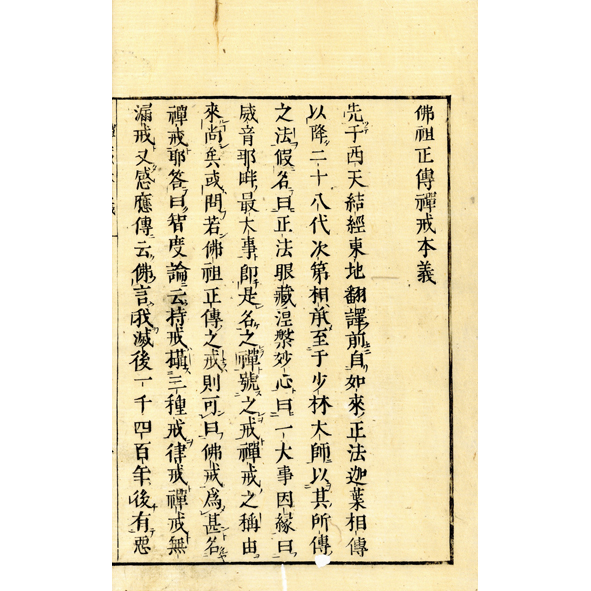 佛祖正傳禪戒本義
先于西天結經東地翻譯前自如來正法迦葉相傳
以降二十八代次第相承至于少林大師以其所傳
之法假名曰正法眼藏涅槃妙心曰一大事因緣曰
威音耶畔最大事卽是名之禪號之戒禪戒之稱由
來尚矣或問若佛祖正傳之戒則可曰佛戒爲甚名
禪戒耶答曰智度論云持戒構三種戒律戒禪戒無
漏戒又感應傳云佛言我滅後一千四百年後有惡